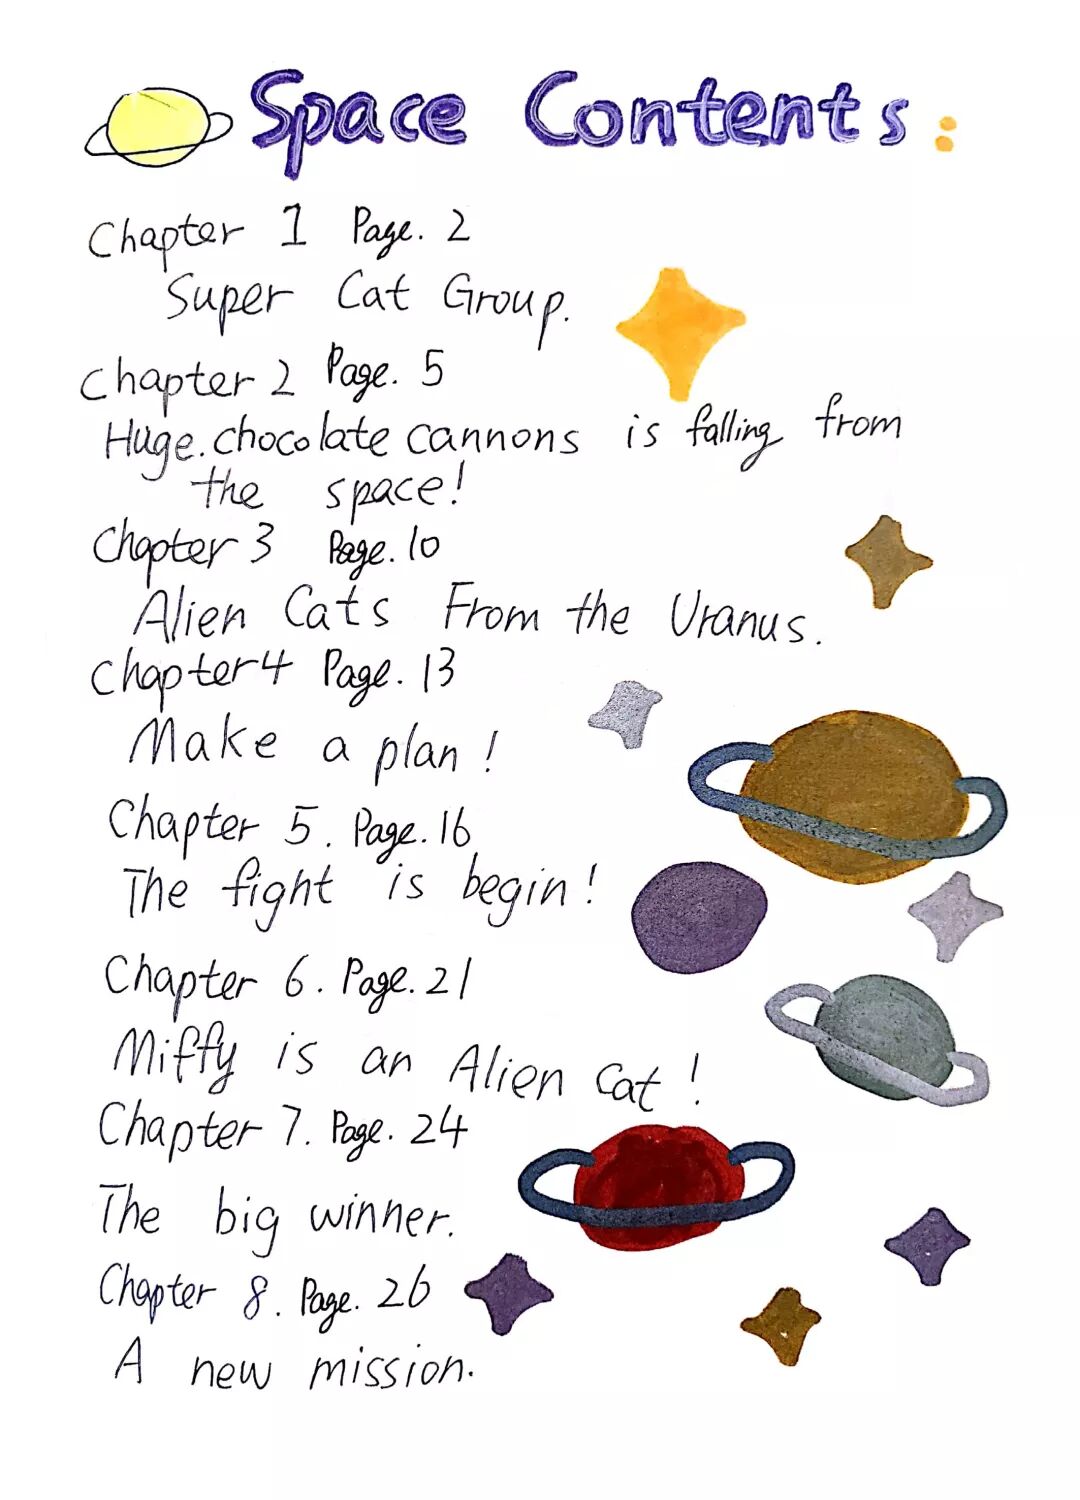 Space Contents:
Chapter 1 Page. 2
Super Cat Group.
Chapter 2 Page. 5
Huge.chocolate cannons is falling from
the space!
Chapter 3 Page. 10
Alien Cats From the Uranus.
Chapter4 Page. 13
Make a plan!
Chapter 5. Page. 16
The fight is begin!
Chapter 6. Page. 21
Miffy is an Alien Cat!
Chapter 7. Page. 24
The big winner.
Chapter 8. Page. 26
A new mission.